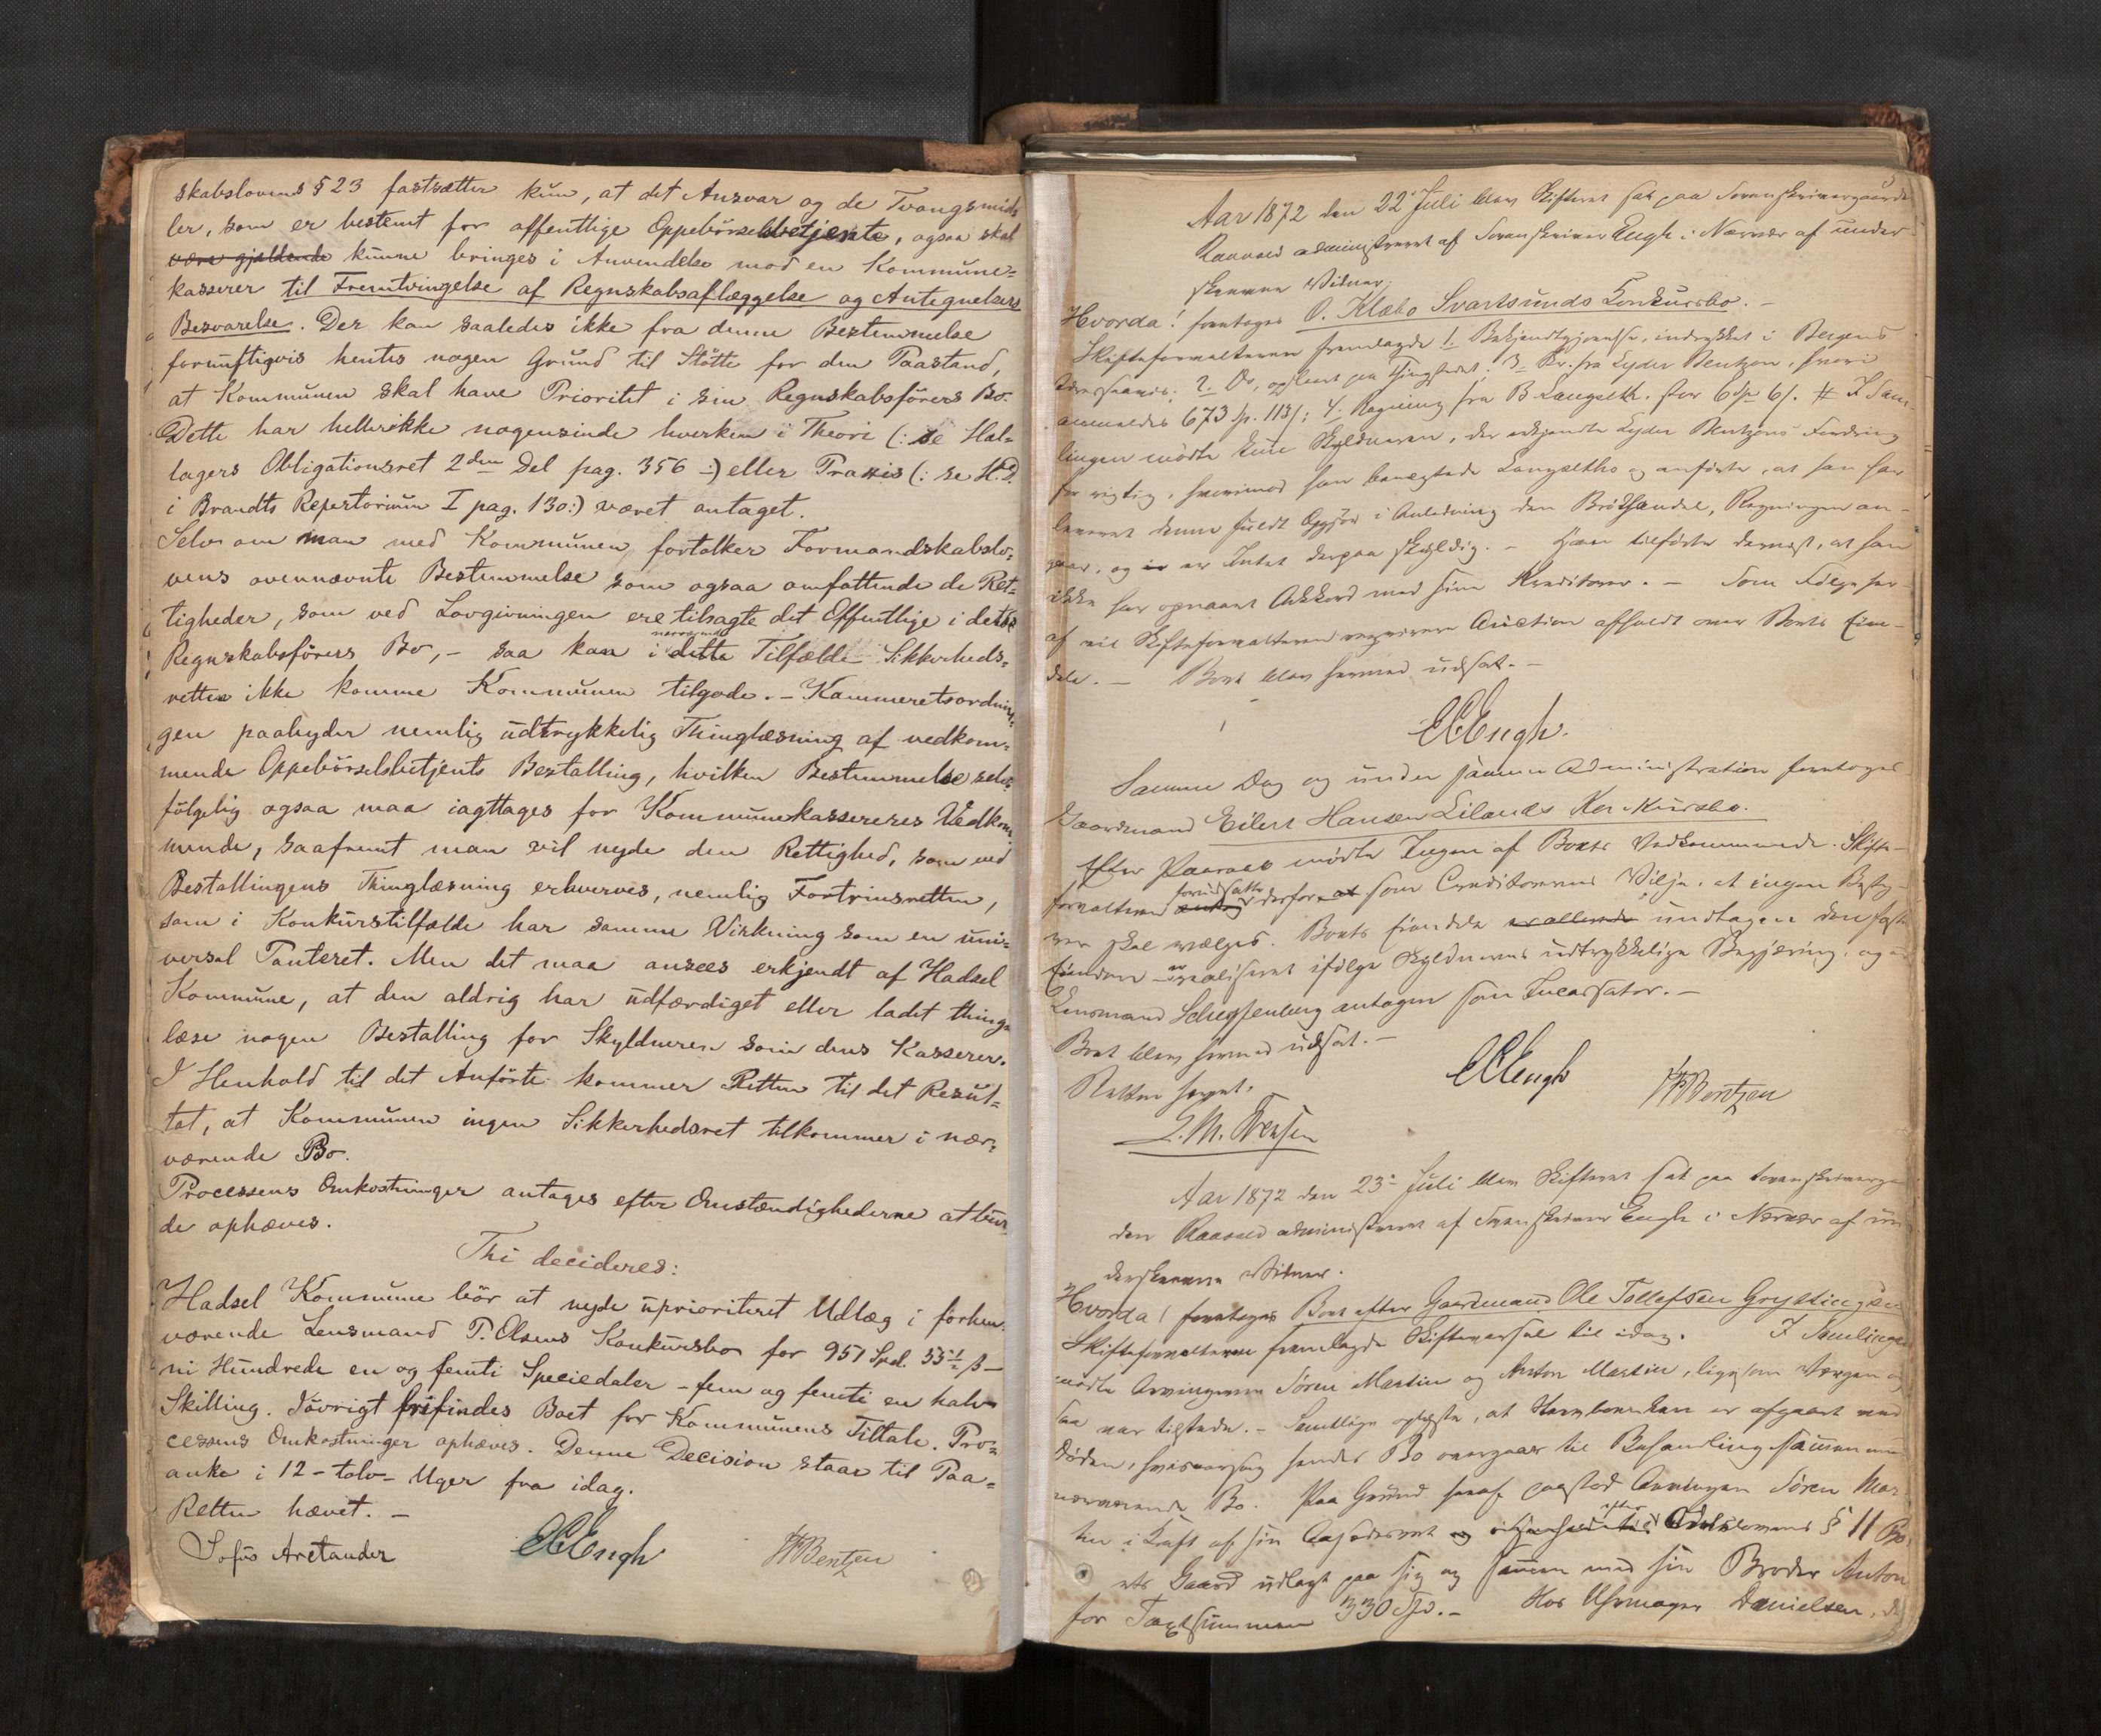 skabslovens § 23 fastsætter kun, at det Ansvar og de Tvangsmid=
ler, som er bestemt for offentlige Oppebörselsbetjente, ogsaa skal
være gjældende kunne bringes i Anvendelse mod en Kommune=
kasserer til Fremtvingelse af Regnskabsaflæggelse og Antegnelsers
Besvarelse. Der kan saaledes ikke fra denne Bestemmelse
fornuftigvis hentes nogen Grund til Stötte for den Paastand,
at Kommunen skal have Prioritet i sin Regnskabsförers Bo.
Dette har hellerikke nogensinde hverken i Theori (: se Hal=
lagers Obligationsret 2den Del pag. 356 :) eller Praxis (: se H.D.
i Brandts Repertorium I pag. 130:) været antaget.
Selv om man med Kommunen fortolker Formandskabslo=
vens ovennævnte Bestemmelse som ogsaa omfattende de Ret=
tigheder, som ved Lovgivningen ere tilsagte det Offentlige i dets
Regnskabsförers Bo, - saa kan i nærværende dette Tilfælde Sikkerheds=
retten ikke komme Kommunen tilgode. - Kammeretsordnin=
gen paabyder nemlig udtrykkelig Thinglæsning af vedkom=
mende Oppebörselsbetjents Bestalling, hvilken Bestemmelse selv=
fölgelig ogsaa maa iagttages for Kommunekassereres Vedkom=
mende, saafremt man vil nyde den Rettighed, som ved
Bestallingens Thinglæsning erhverves, nemlig Fortrinsretten,
som i Konkurstilfælde har samme Virkning som en uni=
versal Panteret. Men det maa ansees erkjendt af Hadsel
Kommune, at den aldrig har udfærdiget eller ladet thing=
læse nogen Bestalling for Skyldneren som dens Kasserer.
I Henhold til det Anförte kommer Retten til det Resul=
tat, at Kommunen ingen Sikkerhedsret tilkommer i nær=
værende Bo.
Processens Omkostninger antages efter Omstændighederne at bur=
de ophæves.
Thi decideres:
Hadsel Kommune bör at nyde uprioriteret Udlæg i forhen=
værende Lensmand P. Olsens Konkursbo for 951 Spd. 55½ ß -
ni Hundrede en og femti Speciedaler - fem og femti en halv
Skilling. Iövrigt frifindes Boet for Kommunens Tiltale. Pro=
cessens Omkostninger ophæves. Denne Decision staar til Paa=
anke i 12 - tolv - Uger fra idag.
Retten hævet. -
Sofus Arctander EC Engh HP Bentzen
Aar 1872 den 22 Juli blev Skifteret sat paa Sorenskrivergaarden
Raavaed administreret af Sorenskriver Engh i Nærvær af under-
skrevne Vidner.
Hvorda! foretoges O. Klæbo Svartsunds Konkursbo. -
Skifteforvalteren fremlagde 1. Bekjendtgjørelse, indrykket i Bergens
Adresseavis; 2. Do, opslaaet paa Thingstedet; 3. Br. fra Lyder Bentzon, hvori
anmeldes 673 Sp. 113 ß; 4. Regning fra B. Langseth, stor 6 Spd 6 ß. # I Sam-
lingen mödte kun Skyldneren, der erkjendte Lyder Bentzons Fordring
for rigtig, hvorimod han benegtede Langseths og anförte, at han har
leveret denne fuldt Opgjör i Anledning den Brödhandel, Regningen an-
gaar, og er Intet derpaa skyldig. - Han tilförte dernæst, at han
ikke har opnaaet Akkord med sine Kreditorer. - Som Fölge her-
af vil Skifteforvalteren requirere Auction afholdt over Boets Eien-
dele. - Boet blev hermed udsat. -
EC Engh.
Samme Dag og under samme Administration foretoges
Gaardmand Eilert Hansen Eilands Konkursbo.
Efter Paaraab mödte Ingen af Boets Vedkommende. Skifte-
forvalteren antog forudsatte derfor at som Creditorernes Vilje, at ingen Besty-
rer skal vælges. Boets Eiendele undtagen den faste
Eiendom er realiseret ifölge Skyldnerens udtrykkelige Begjæring, og er
Lensmand antagen som Incassator. -
Boet blev hermed udsat. -
Retten hævet.
EC Engh HP Bentzen
Aar 1872 den 23 Juli blev Skifteret sat paa Sorenskrivergaar
den Raavaed administreret af Sorenskriver Engh i Nærvær af un
derskrevne Vidner.
Hvorda! foretoges Boet efter Gaardmand Ole Tollefsen
Skifteforvalteren fremlagde Skiftevarsel til idag. I Samlingen
mödte Arvingerne Sören Martin og Anton Martin, ligesom Værgen og
saa var tilstede. - Samtlige oplyste, at er afgaaet ved
Döden, hvisaarsag hendes Bo overgaar til Behandling sammen med
nærværende Bo. Paa Grund heraf paastod Arvingen Sören Mar
tin i Kraft af sin Aasædesret og efter Odelslovens § 11 Bo
ets Gaard udlagt paa sig og sammen med sin Broder Anton
for Taxtsummen 330 Spd. - Hos Uhrmager Danielsen, de